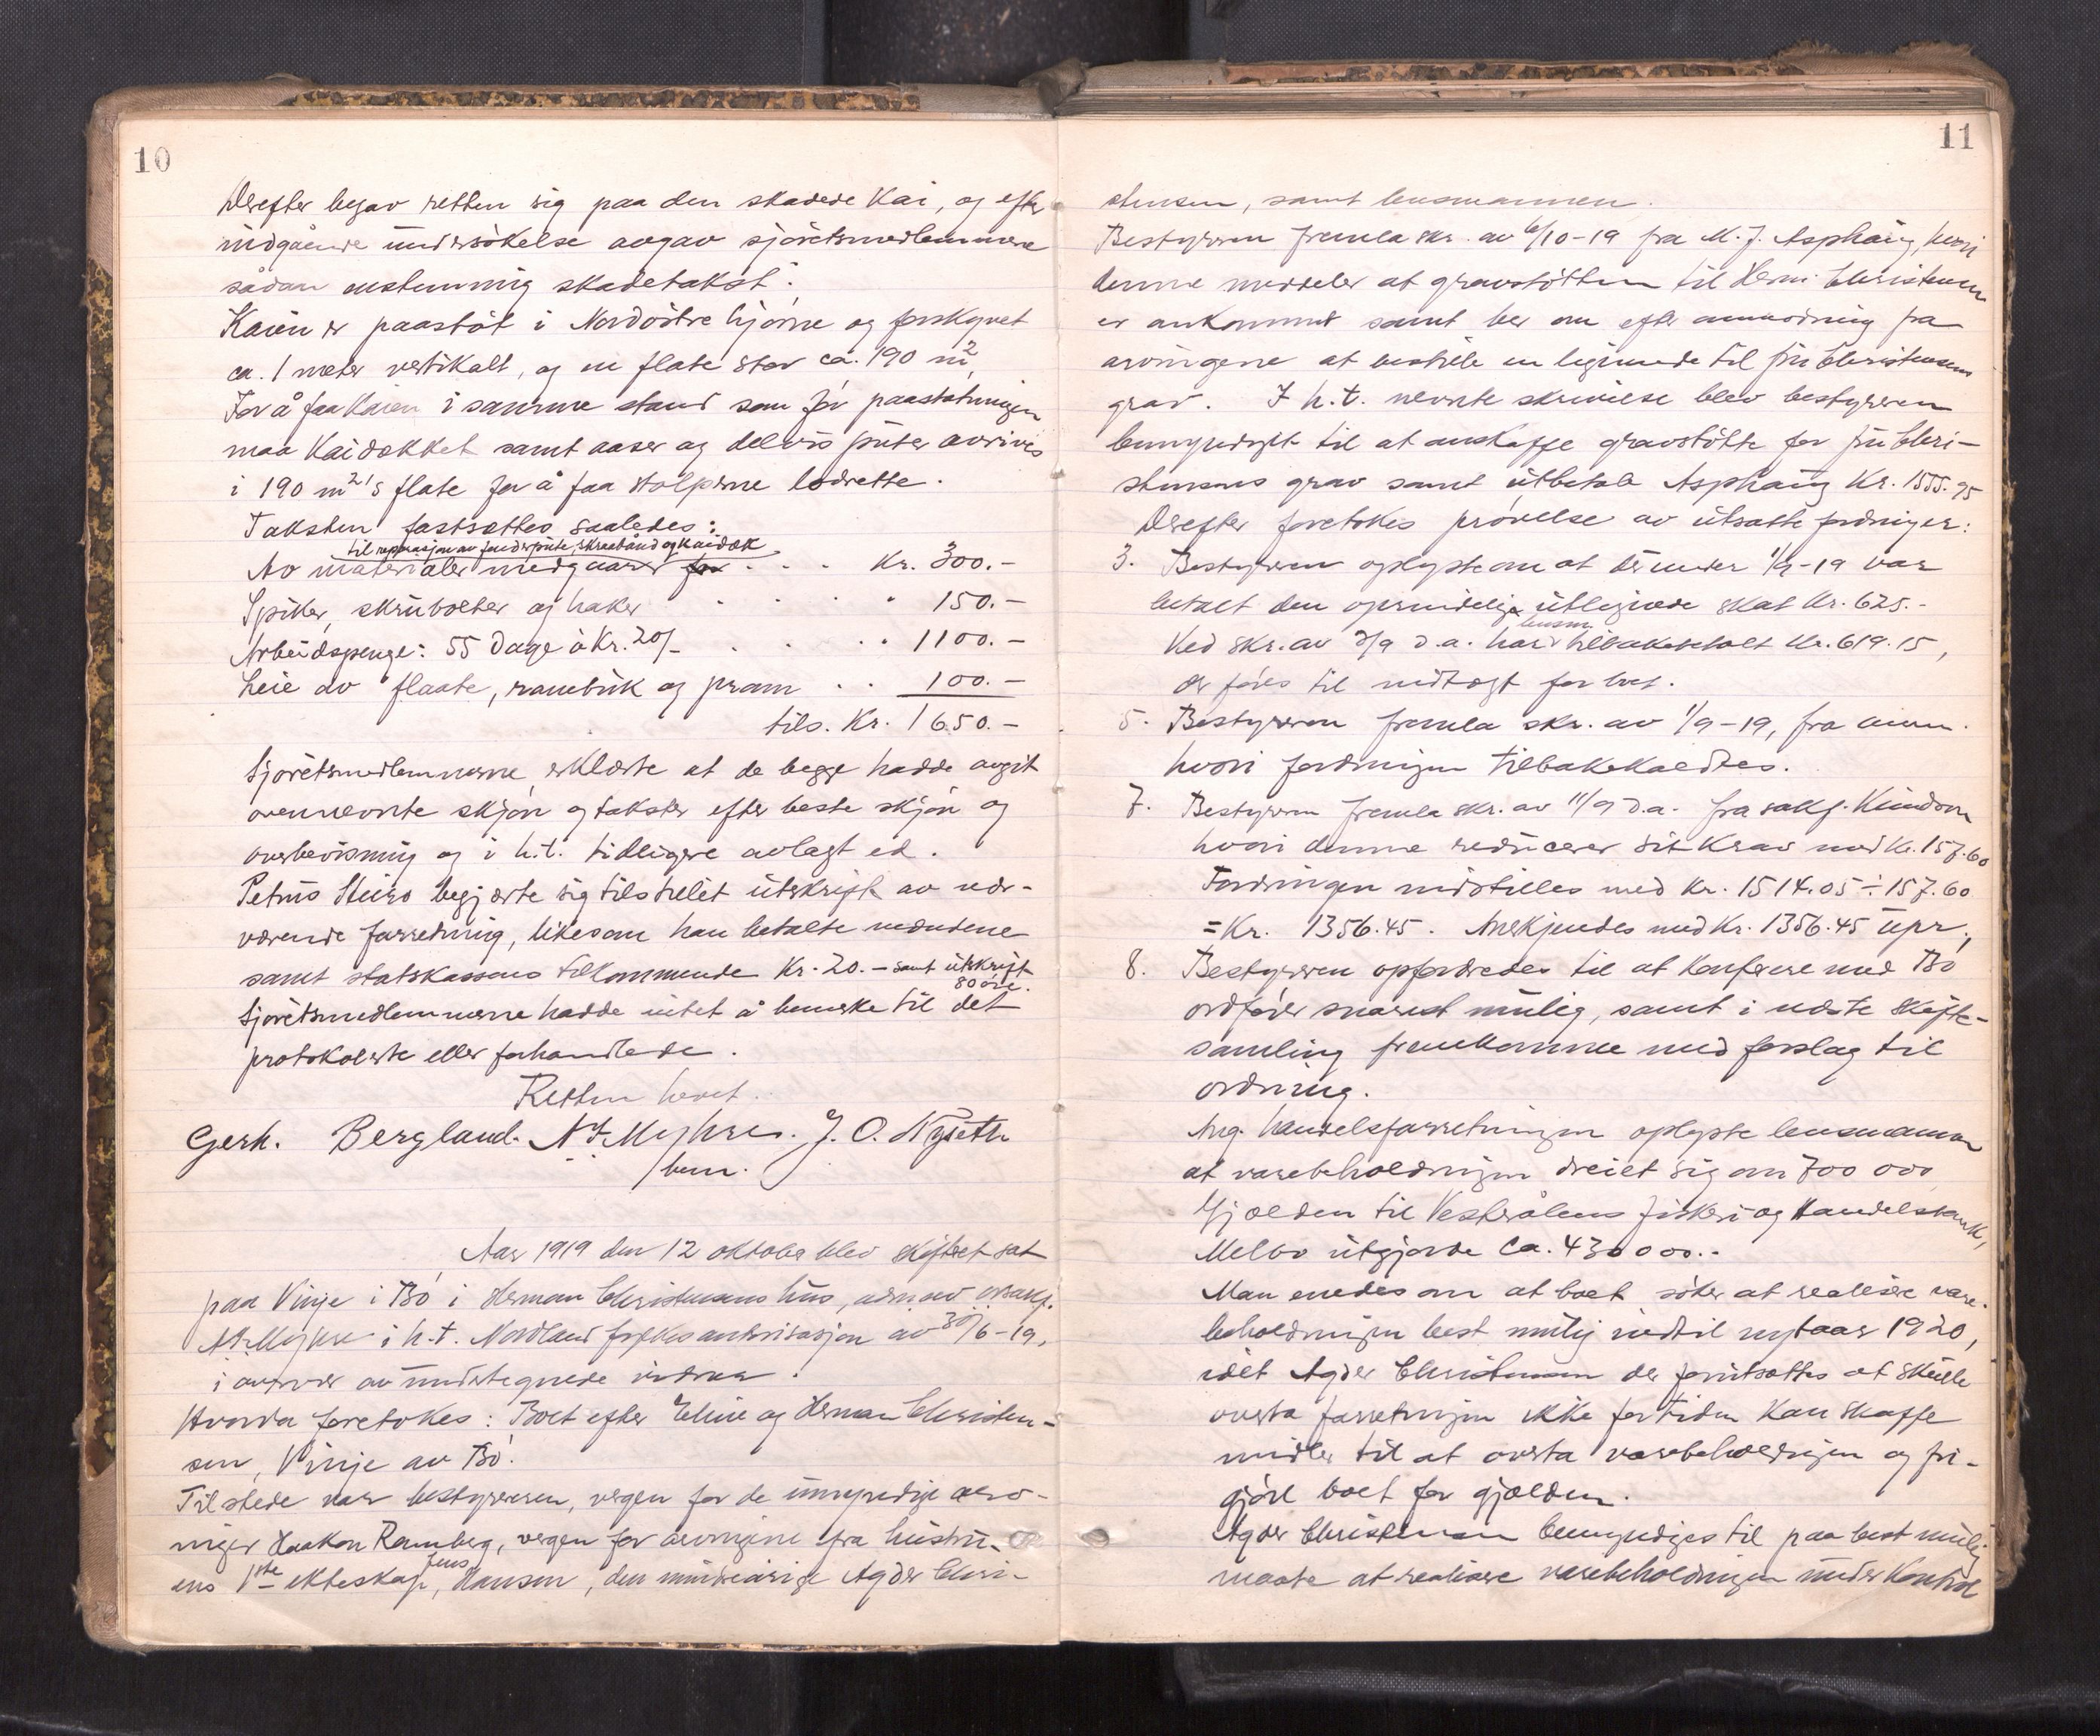 10
Derefter begav retten sig paa den skadede Kai, og efter
indgående undersøkelse avgav sjøretsmedlemmene
sådan enstemmig skadetakst:
Kaien er paastøt i Nordøstre hjørne og forskjøvet
ca. 1 meter vertikalt, og en flate stor ca. 190 m2,
For å faa Kaien i samme stand som før paastøtningen
maa Kaidækket samt aaser og delvis puter avrives
i 190 m2's flate for å faa stolperne lodrette.
Taksten fastsættes saaledes:
til reparasjon av fenderpute, skraabånd og Kaidæk
Av materialer medgaar for . . . Kr. 300.-
Spiker, skrubolter og haker . . . . . 150.-
Arbeidspenge: 55 Dage à Kr. 20/- . . . . 1100.-
Leie av flaate, rambuk og pram . . 100.-
tils. Kr. 1650.-
Sjøretsmedlemmerne erklærte at de begge hadde avgit
ovennevnte skjøn og takster efter beste skjøn og
overbevisning og i h.t. tidligere avlagt ed.
Petrus begjærte sig tilstillet utskrift av nær-
værende forretning, likesom han betalte mødutene
samt statskassens tilkommende Kr. 20.- samt utskrift
80 øre.
Sjøretsmedlemmerne hadde intet å bemerke til det
protokolerte eller forhandlede.
Retten hevet.
Gerh. Bergland. N. Myhre. J. O. Nygseth
bem.
Aar 1919 den 12 oktober blev skifteret sat
paa Vinje i Bø i Herman Christensens hus, adm. av overrsakf.
N. Myhre i h.t. Nordland fylkes autorisasjon av 30/6-19,
i nærvær av undertegnede vidner.
Hvorda foretokes: Boet efter Eline og Herman Christen-
sen, Vinje av Bø.
Tilstede var bestyreren, vergen for de umyndige arv-
inger Haakon Ramberg, vergen for arvingene fra hustru-
Jens
ens 1ste ekteskap, Hansen, den mindreårige Agder Chri-
11
stensen, samt lensmannen.
Bestyreren fremla skr. av 6/10-19 fra M. J. Asphaug, hvori
denne meddeler at gravstøtten til Herm. Christensen
er ankommet samt ber om efter anmodning fra
arvingene at bestille en lignende til fru Christensens
grav. I h.t. nevnte skrivelse blev bestyreren
bemyndiget til at anskaffe gravstøtte for fru Chri-
stensens grav samt utbetale Asphaug Kr. 1555.95
Derefter foretokes prøvelse av utsatte fordringer:
3. Bestyreren oplyste om at der under 1/9-19 var
betalt den oprindelige utlignede skat Kr. 625.-
lensm.
Ved skr. av 3/9 d.a. har tilbakebetalt Kr. 619.15,
der føres til indtægt for boet.
5. Bestyreren fremla skr. av 1/9-19, fra anm.
hvori fordringen tilbakekaldtes.
7. Bestyreren fremla skr. av 11/9 d.a. fra sakf.
hvori denne reducerer sit krav med Kr. 157.60
Fordringen indstilles med Kr. 1514.05 ÷ 157.60
= Kr. 1356.45. Anerkjendes med Kr. 1356.45 upr.,
8. Bestyreren opfordredes til at konferere med Bø
ordfører snarest mulig, samt i næste skifte-
samling fremkomme med forslag til
ordning.
Ang. handelsforretningen oplyste lensmannen
at varebeholdningen dreiet sig om 700 000
Gjælden til Vesterålens fiskeri og Handelsbank,
Melbo utgjorde ca. 430000.-
Man enedes om at boet søker at realisere vare-
beholdningen best mulig indtil nytaar 1920,
idet Agder Christensen der forutsættes at skulle
overta forretningen ikke for tiden kan skaffe
midler til at overta varebeholdningen og fri-
gjøre boet for gjælden.
Agder Christensen bemyndiges til paa best mulig
maate at realisere varebeholdningen under kontrol